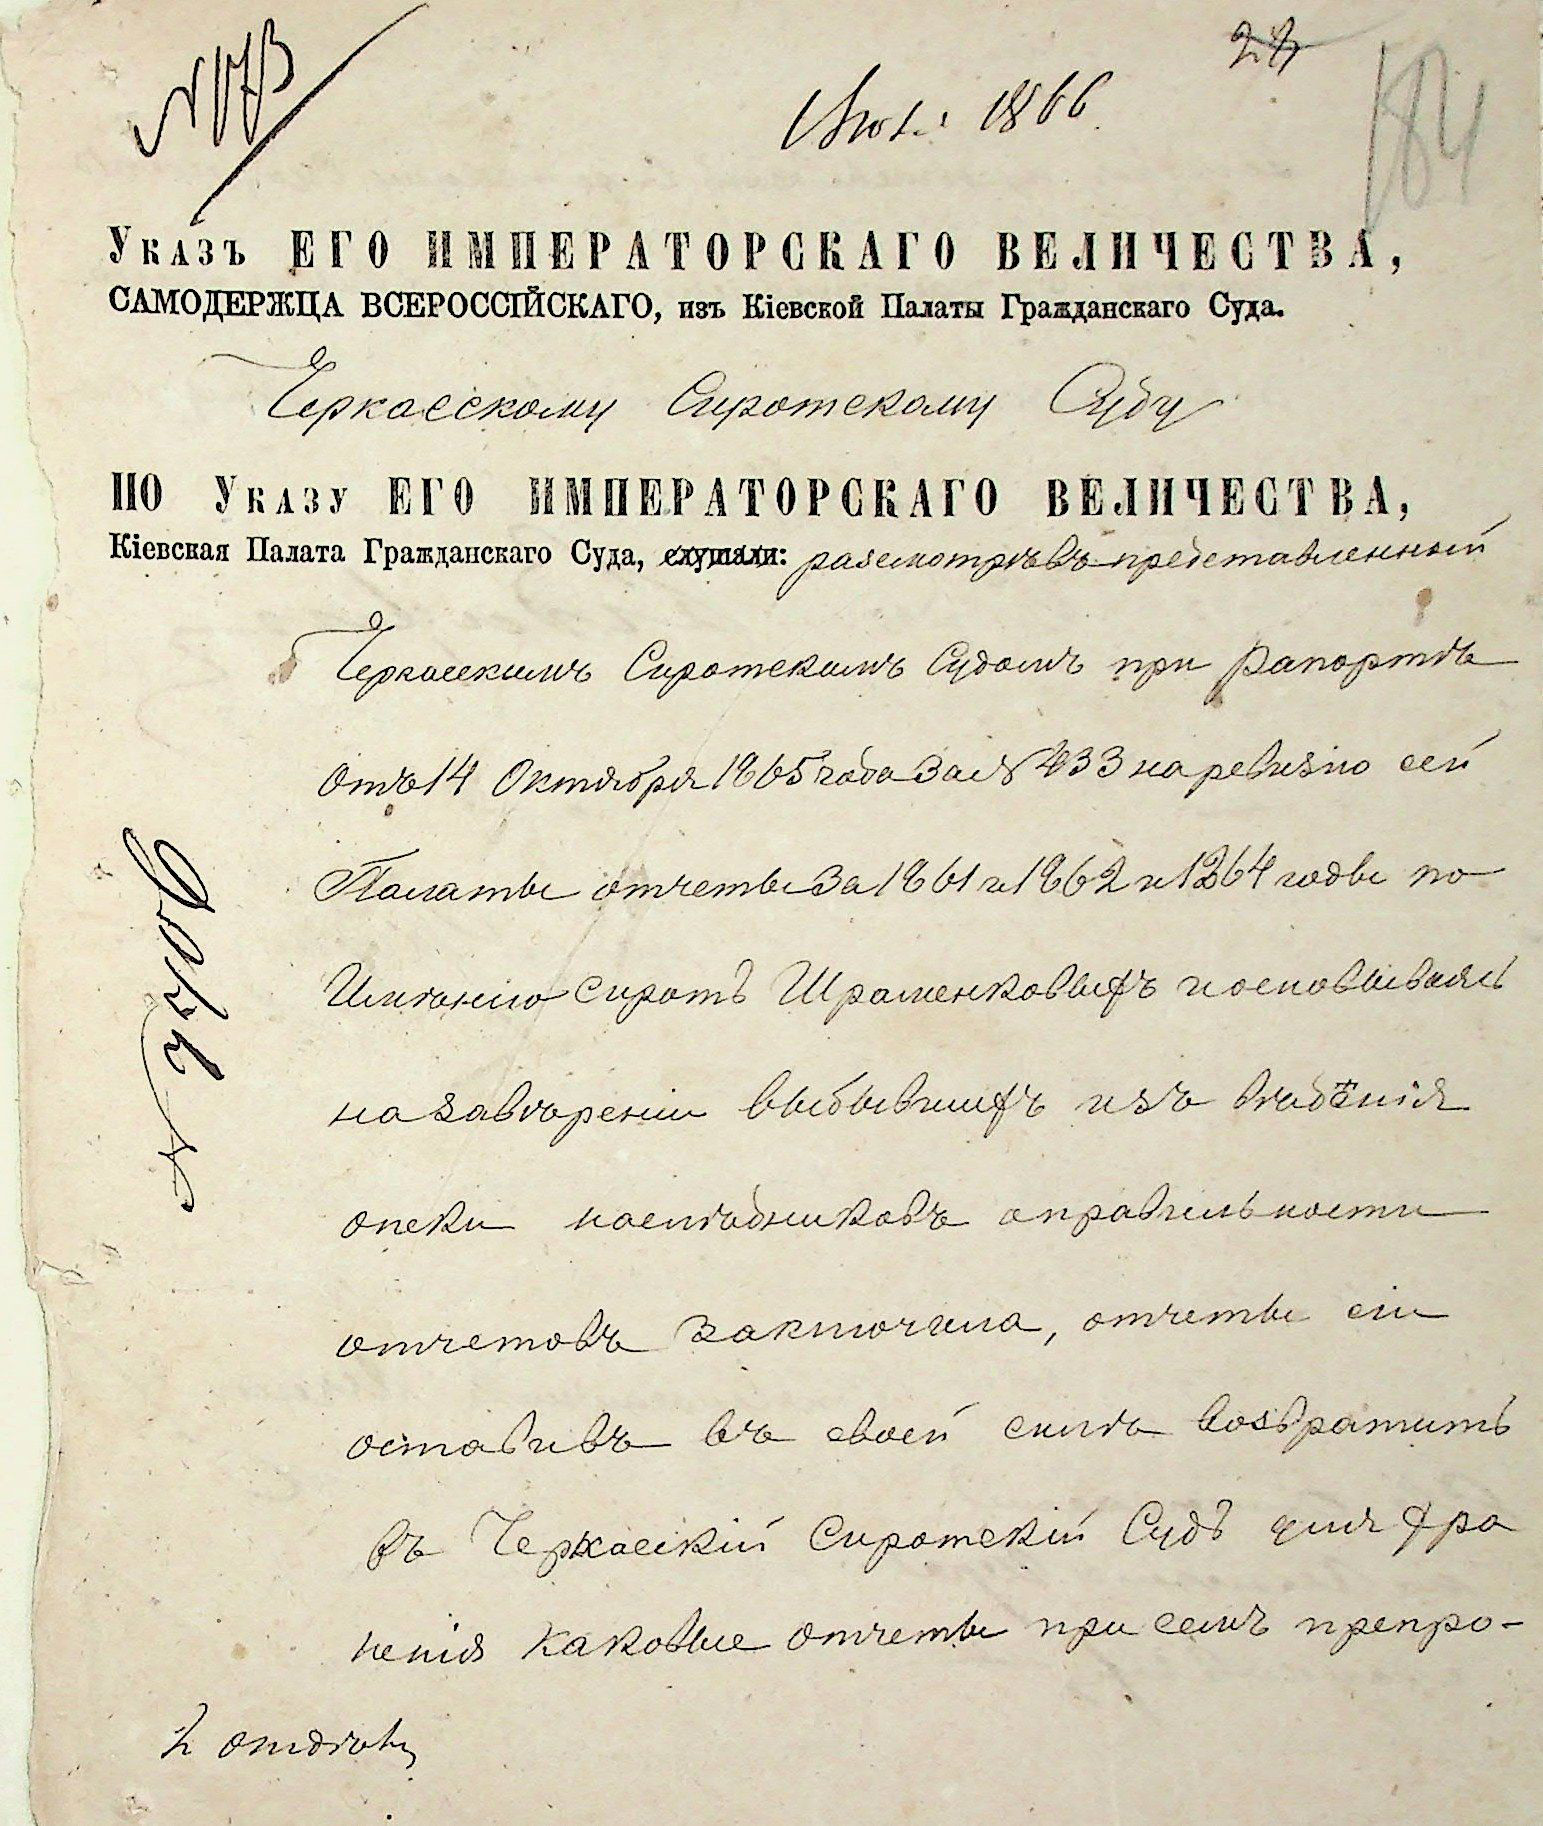 28
184
1866
Указъ ЕГО ИМПЕРАТОРСКАГО ВЕЛИЧЕСТВА,
САМОДЕРЖЦА ВСЕРОССІЙСКАГО, изъ Кіевской Палаты Гражданскаго Суда.
Черкасскому Сиротскому Суду
ПО Указу ЕГО ИМПЕРАТОРСКАГО ВЕЛИЧЕСТВА,
Кіевская Палата Гражданскаго Суда, слушали: разсмотрѣвъ представленный
Черкасскимъ Сиротскимъ Судомъ при рапортѣ
отъ 14 Октября 1865 года за № 433 на ревизію сей
Палаты отчеты за 1861 и 1862 и 1864 годы по
Имѣнію сиротъ Шраменковыхъ и основываясь
на завѣреніи выбывшихъ изъ
опеки наслѣдниковъ о правильности
отчетовъ заключила, отчеты сіи
оставивъ въ своей силѣ возвратить
въ Черкаскій Сиротскій Судъ для хра
ненія каковые отчеты при семъ препро-